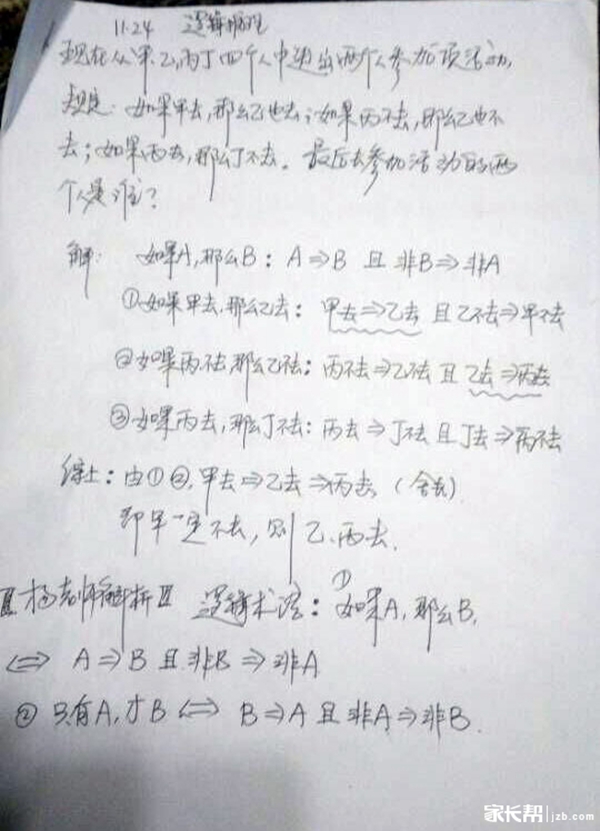 11.24 逻辑推理
现在从甲、乙、丙丁四个人中选出两个人参加一项活动,
规定:如果甲去,那么乙也去;如果丙不去,那么乙也不
去;如果丙去,那么丁不去。最后去参加活动的两
个人是谁?
解: 如果A,那么B: A⇒B 且 非B⇒非A
①如果甲去,那么乙去: 甲去⇒乙去 且 乙不去⇒甲不去
②如果丙不去那么乙不去: 丙不去⇒乙不去 且 乙去⇒丙去
③如果丙去,那么丁不去: 丙去⇒丁不去 且 丁去⇒丙不去
综上: 由①②,甲去⇒乙去⇒丙去 (舍去)
即甲一定不去, 则乙、丙去.
杨老师解析 逻辑术语: ①如果A,那么B,
⇔ A⇒B 且 非B⇒非A
② 只有A,才B ⇔ B⇒A 且 非A⇒非B.
家长帮 jzb.com